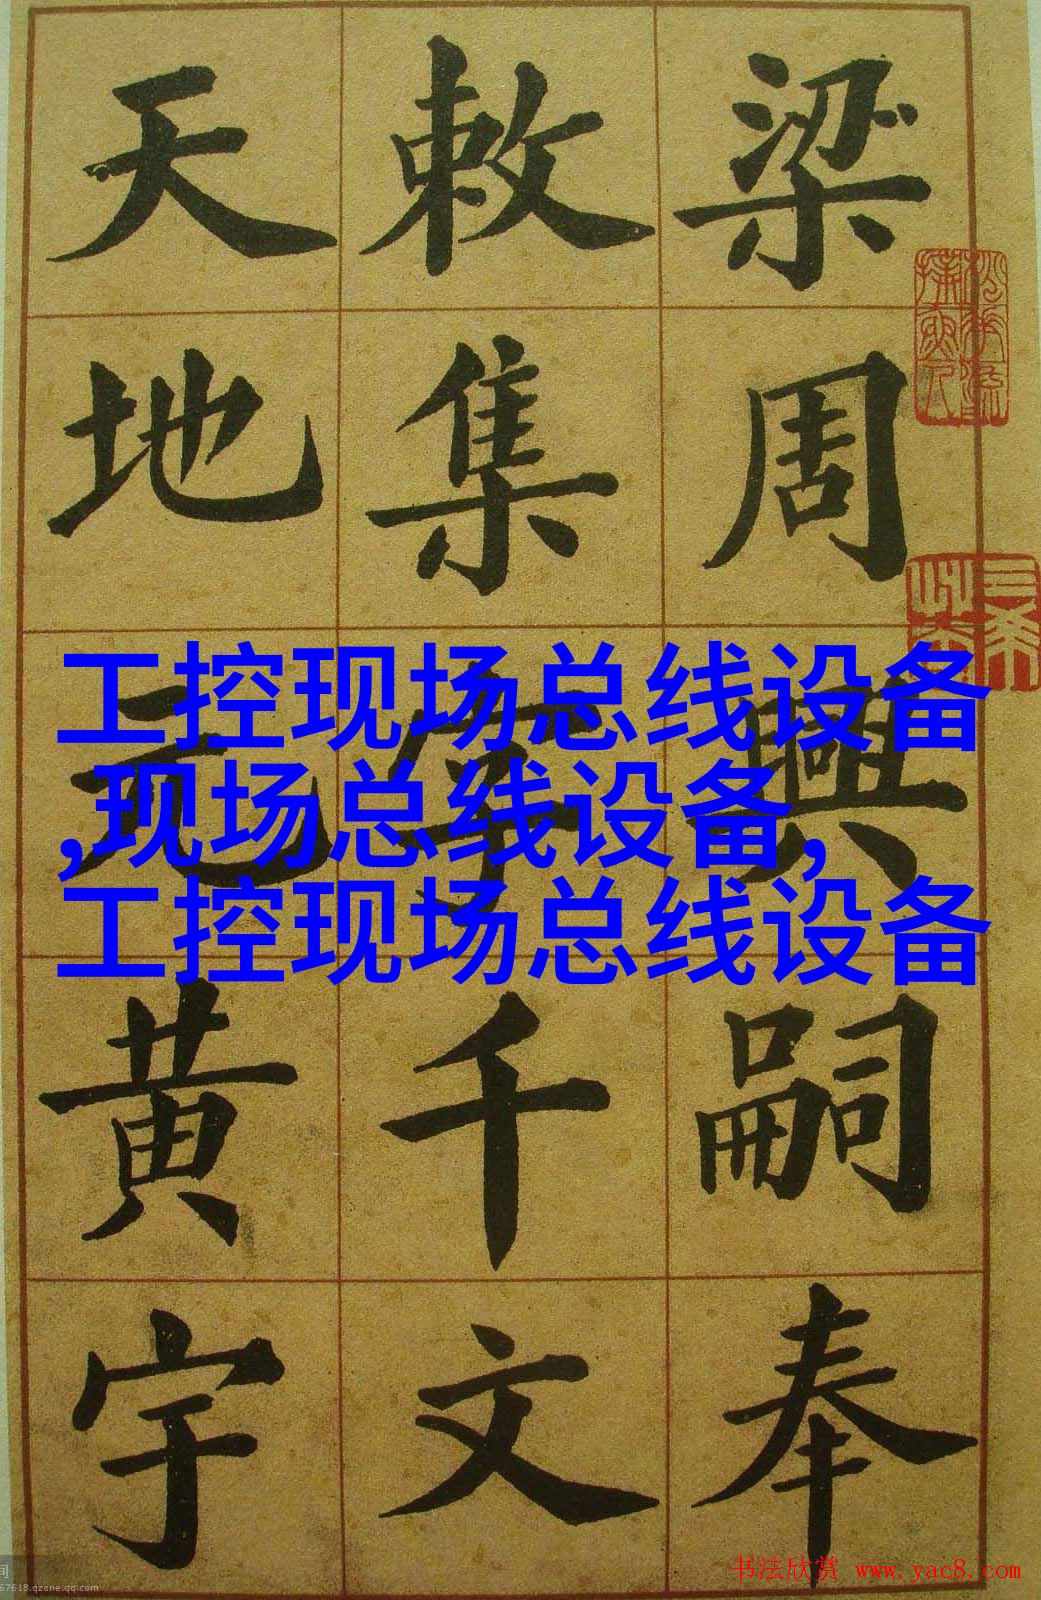 梁周興嗣奉
敕集字千文
天地元黄宇
工控现场总线设备
,现场总线设备,
工控现场总线设备
书法欣赏 www.yac8.com
67618.qzone.qq.com